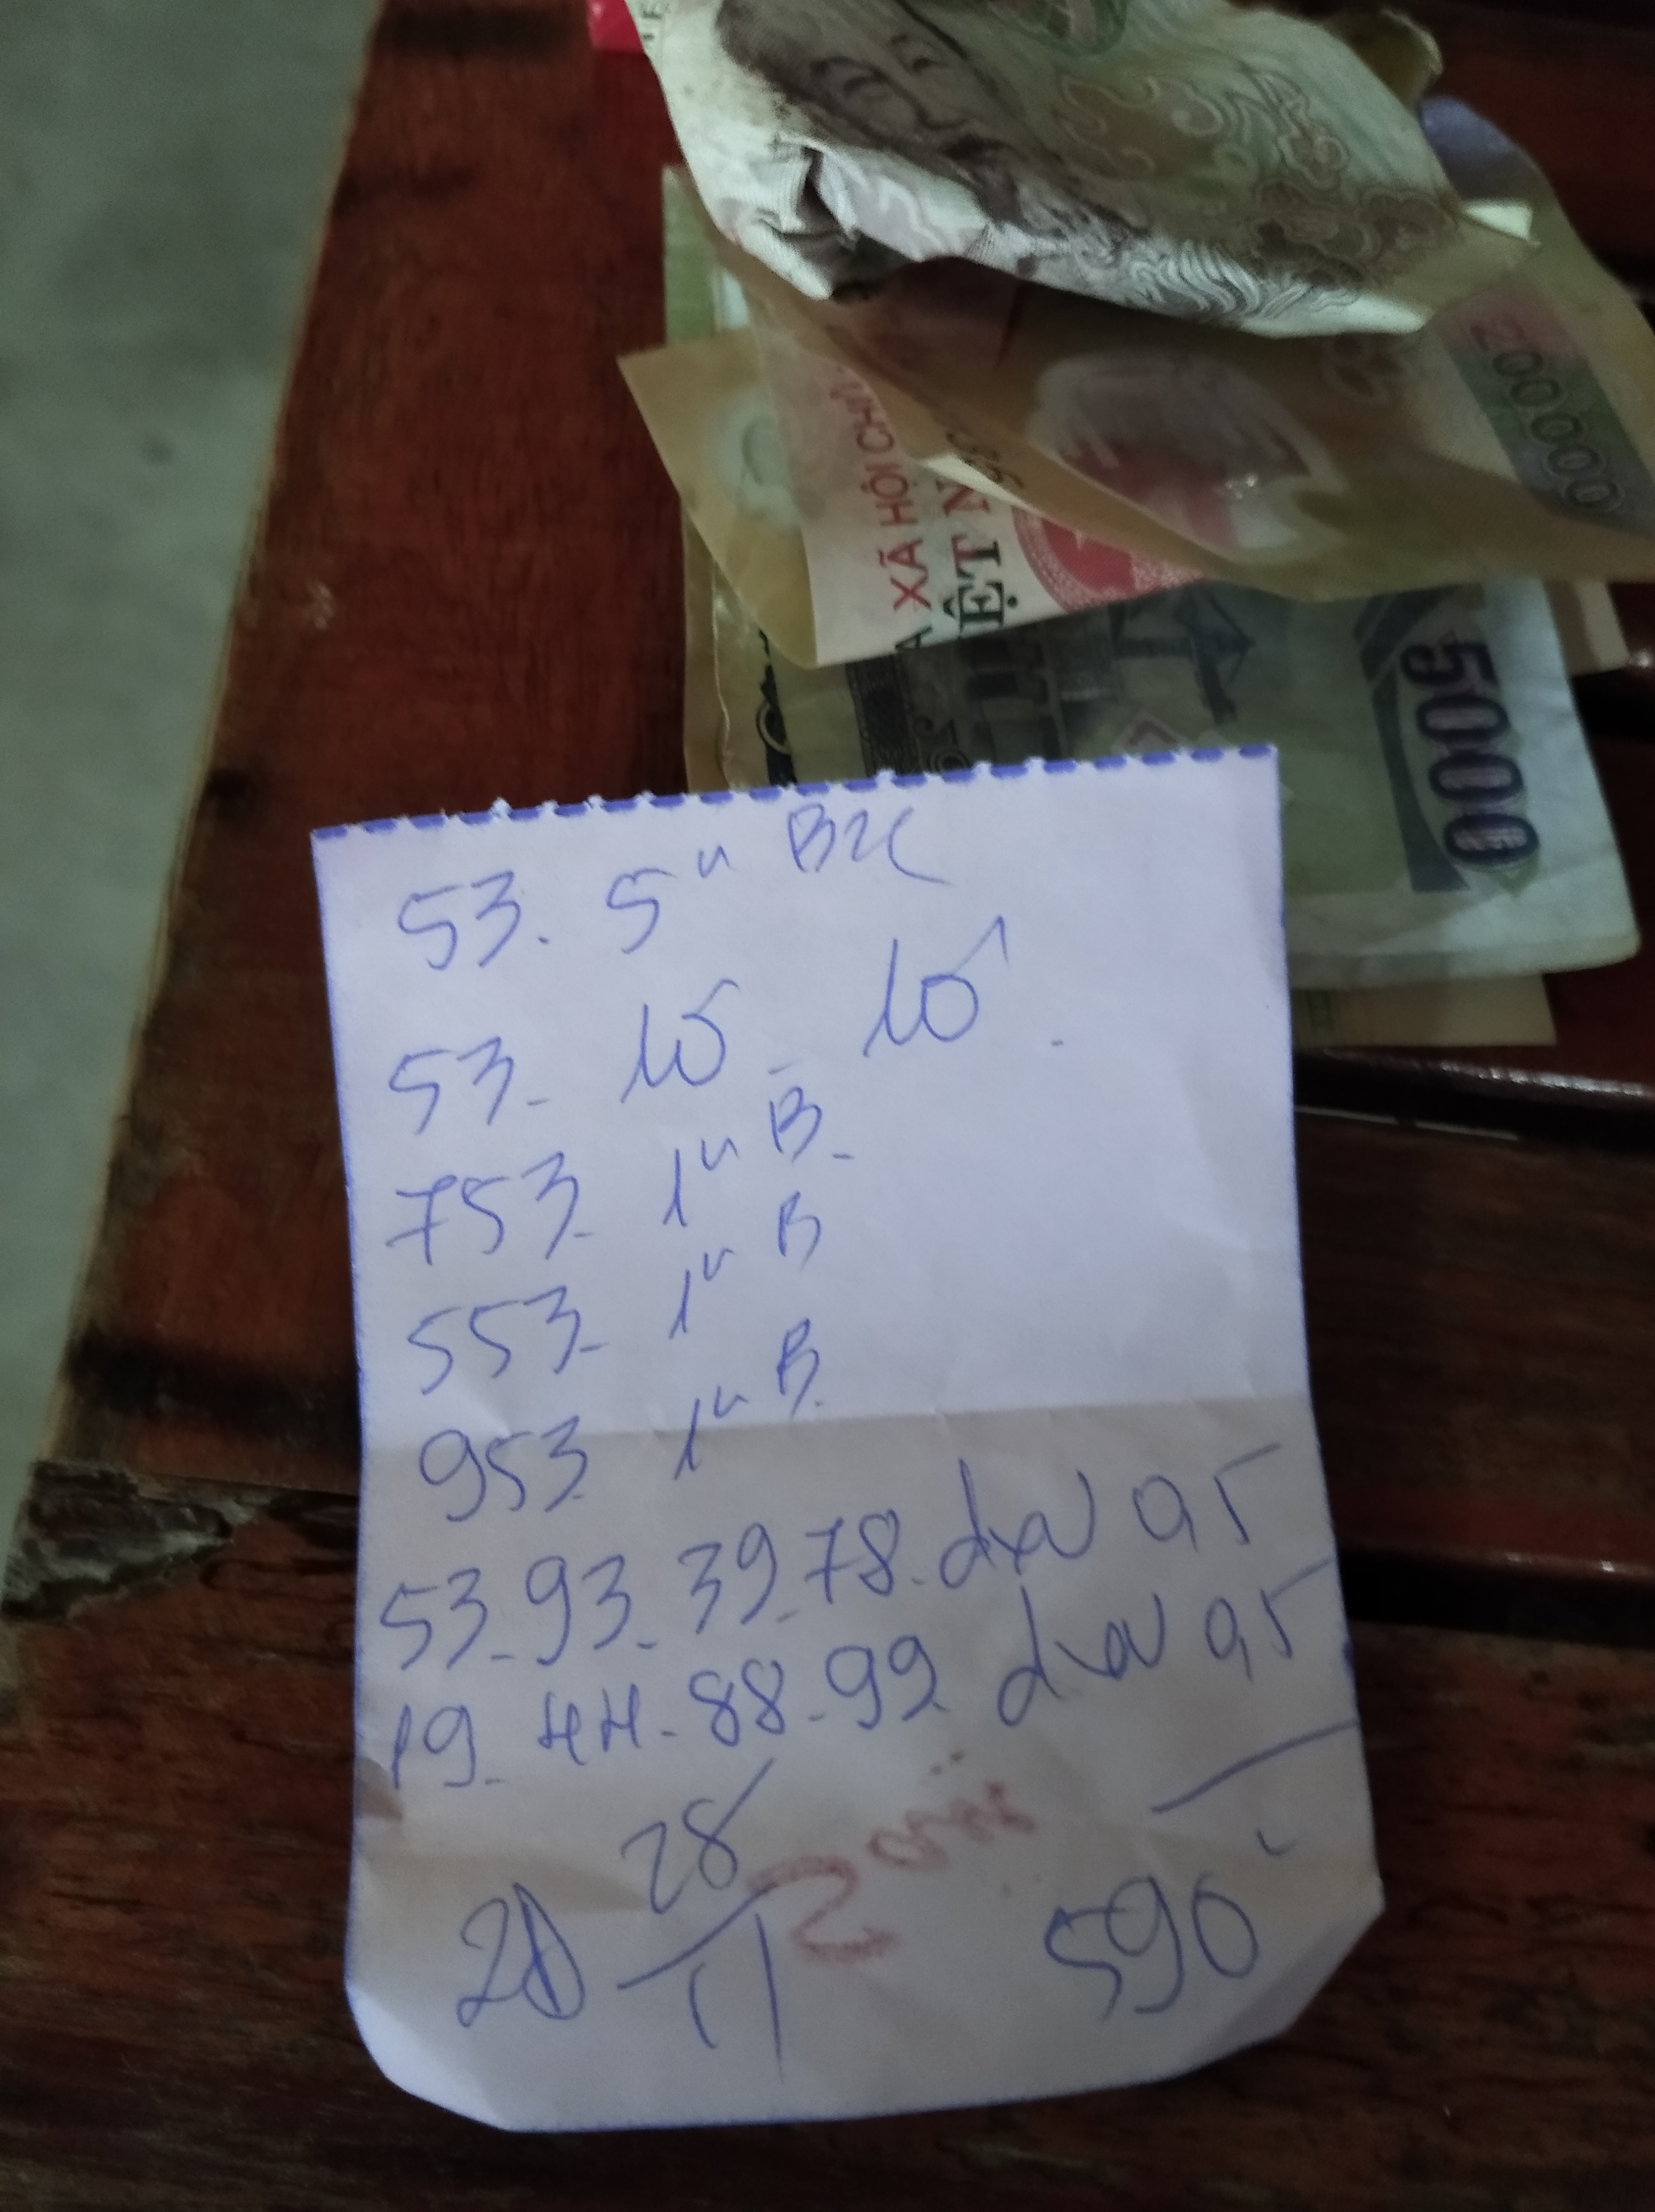 XÃ HỘI CHỦ
ỆT N
200000
5000
53. 5ⁿ B2C
53- 10 - 10.
753- 1ⁿ B-
553- 1ⁿ B
953 1ⁿ B.
53-93-39-78. dxv 0,5
19-44-88-99 dxv 0,5
2D 28/11 590